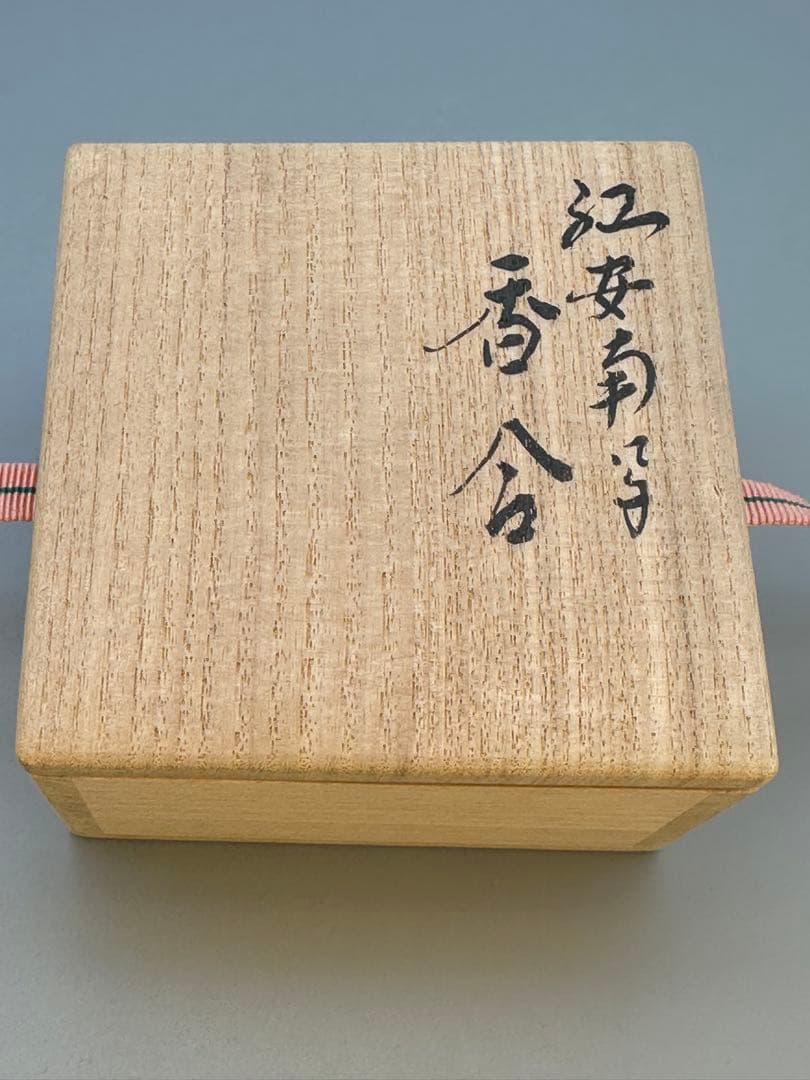 紅安南写
香合